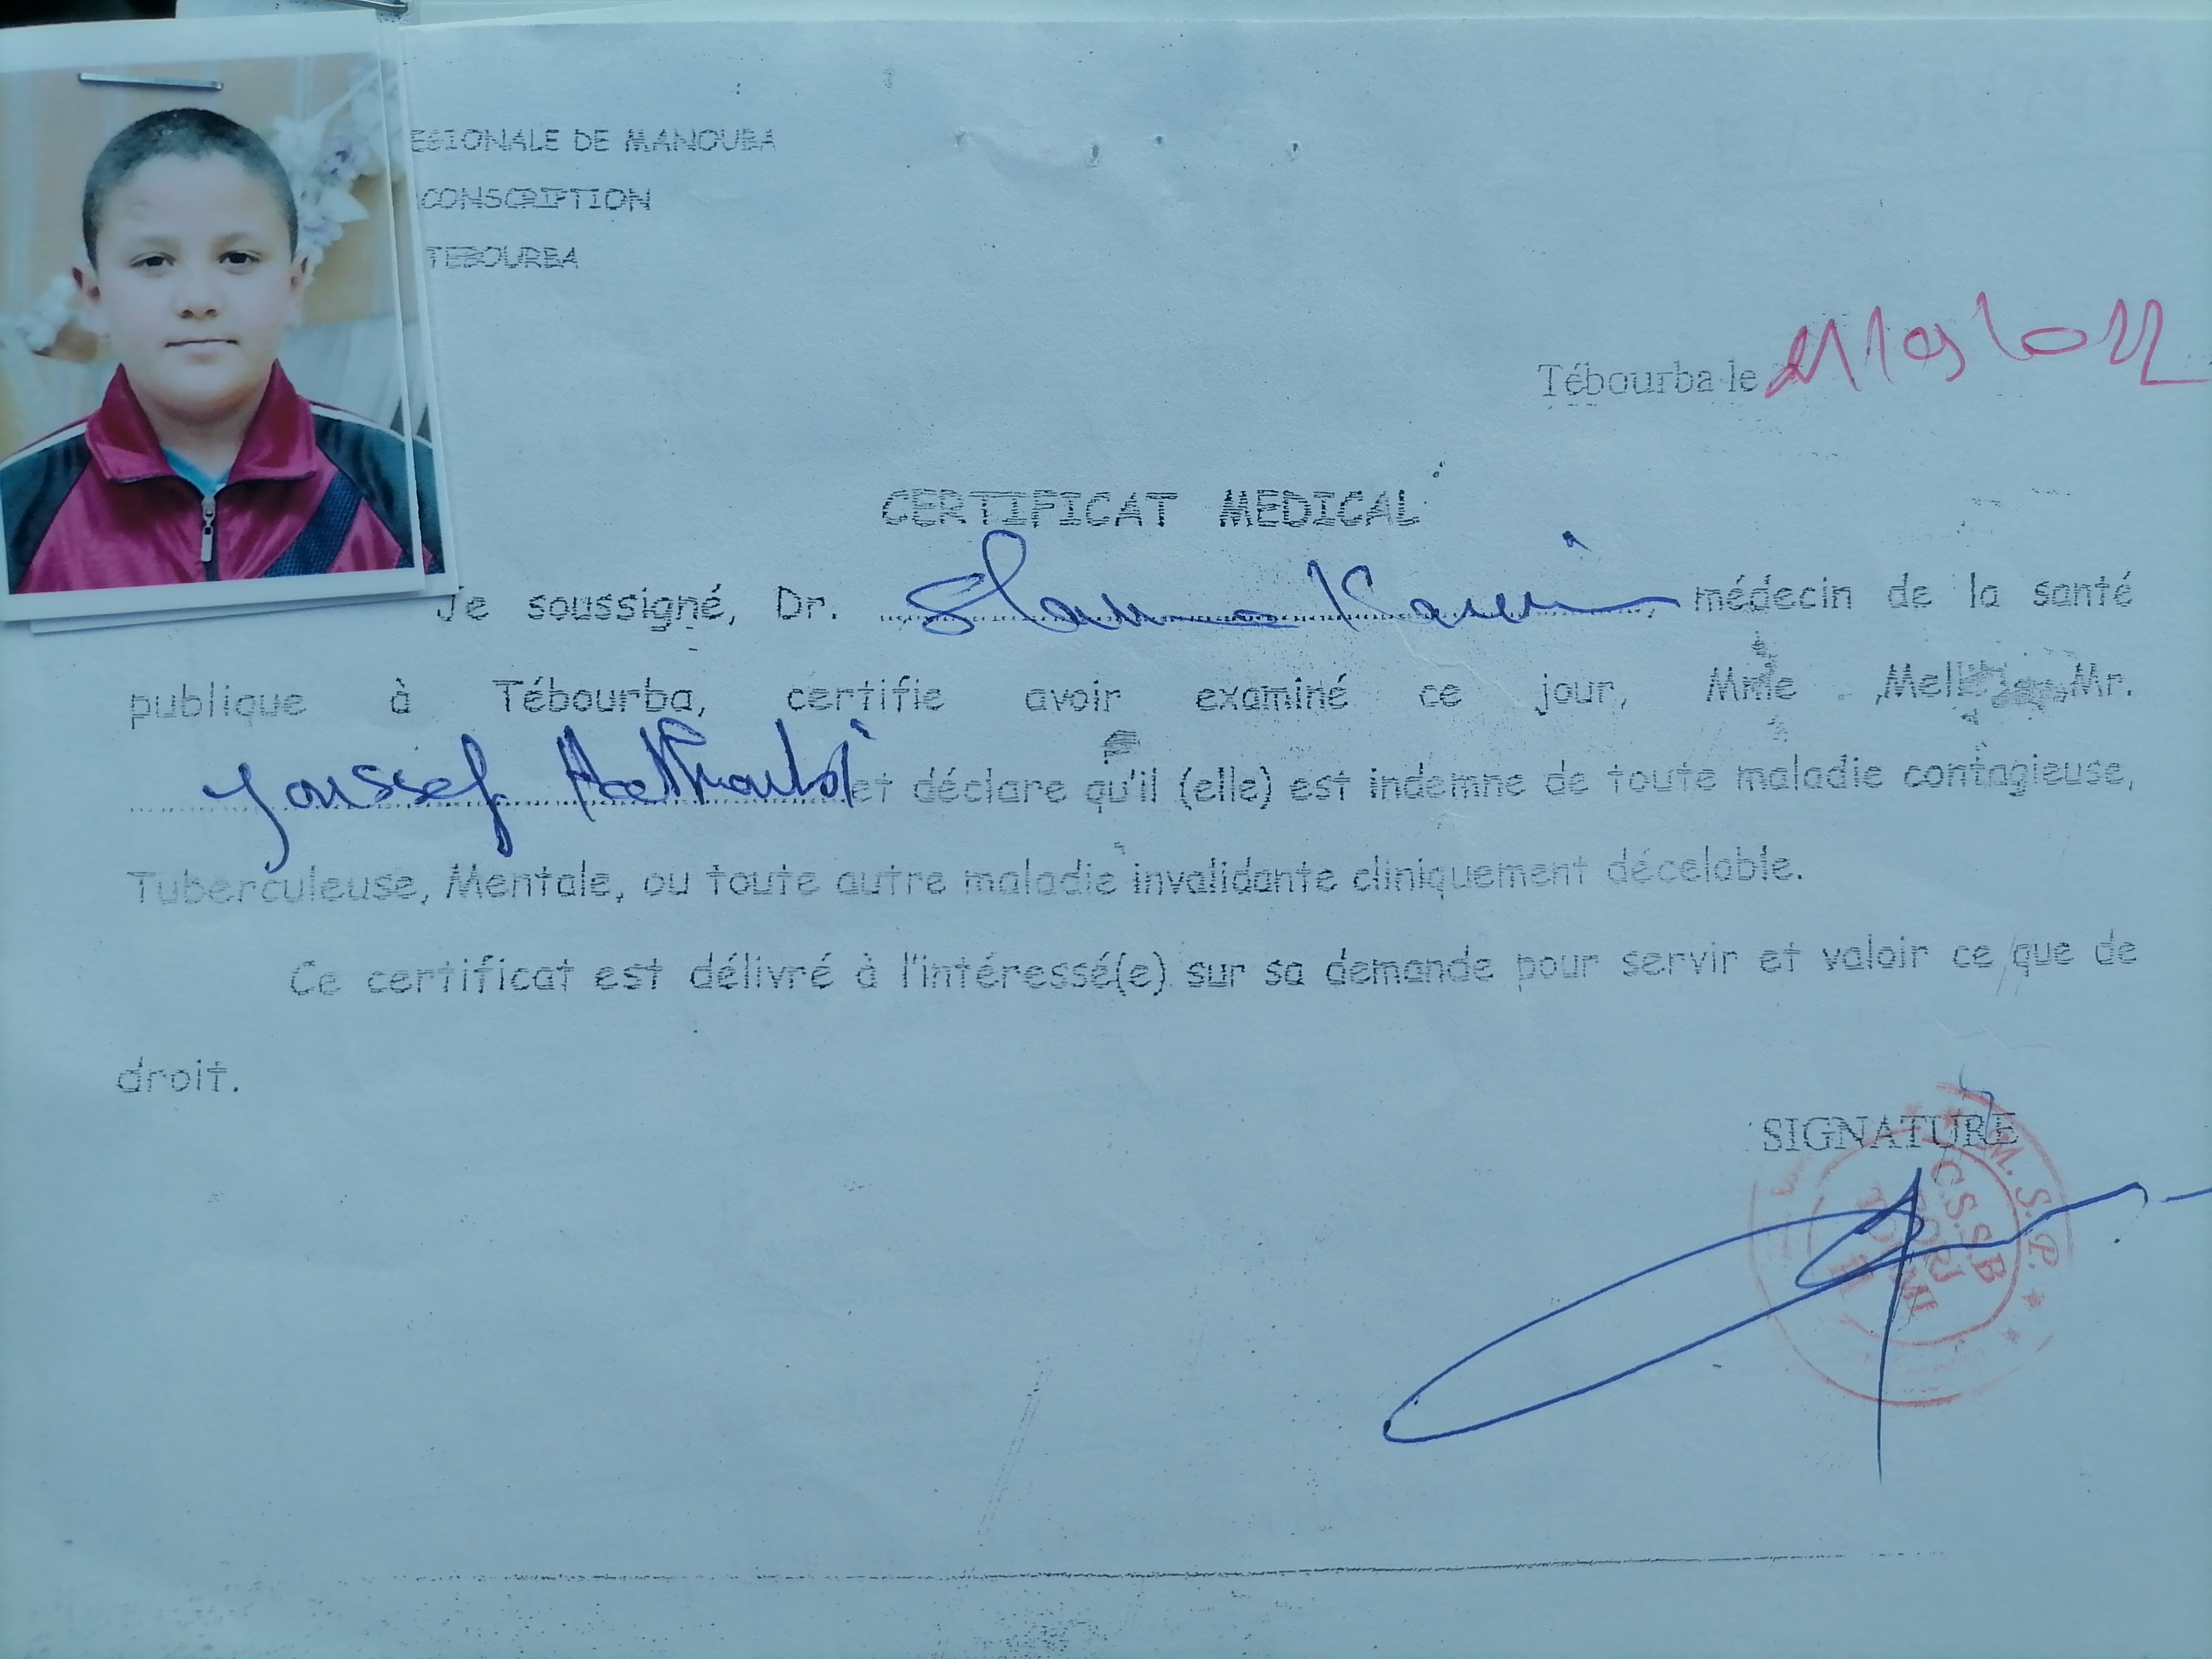 EGIONALE DE MANOUBA
CONSCRIPTION
TEBOURBA
Tébourba le
CERTIFICAT MEDICAL
Je soussigné, Dr. médecin de la santé
publique à Tébourba, certifie avoir examiné ce jour, Mme ,Melle, Mr.
Youssef et déclare qu'il (elle) est indemne de toute maladie contagieuse,
Tuberculeuse, Mentale, ou toute autre maladie invalidante cliniquement décelable.
Ce certificat est délivré à l'intéressé(e) sur sa demande pour servir et valoir ce que de
droit.
SIGNATURE
M.S.P.
C.S.S.B